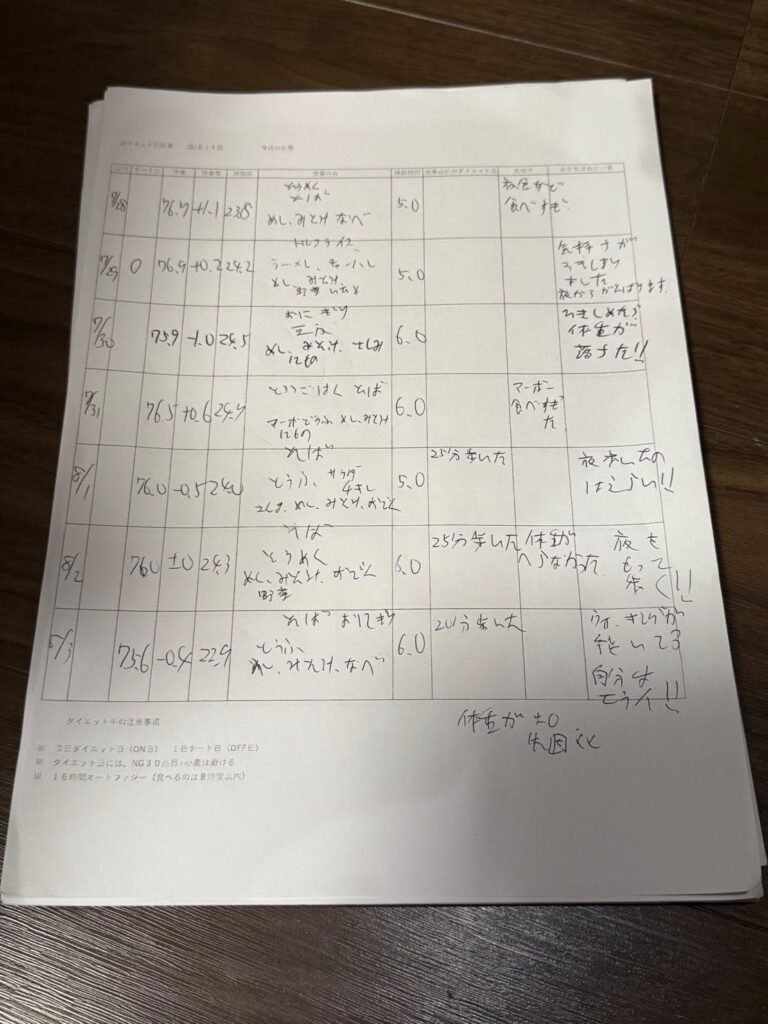 ダイエット
日付
体重
体脂肪
食事内容
睡眠時間
自分をほめた一事
7/28
76.7
+1.1
23.8
めし、みそ汁、なべ
5.0
夜食など
食べすぎ
7/29
0
76.9
+0.2
24.2
ラーメン、チャーハン
めし、みそ汁
野菜いため
5.0
気持ちが
ひきしまり
ました
夜からがんばります。
7/30
75.9
-1.0
24.5
おにぎり
めし、みそ汁、さしみ
にもの
6.0
ひきしめたら
体重が
落ちた!!
7/31
76.5
+0.6
24.7
とろろごはん そば
マーボどうふ めし、みそ汁
にもの
6.0
マーボー
食べすぎ
た
8/1
76.0
-0.5
24.0
そば
とうふ、サラダ
さんま、めし、みそ汁、おでん
5.0
25分歩いた
夜歩いたの
はえらい!!
8/2
76.0
±0
24.3
そば
めし、みそ汁、おでん
野菜
6.0
25分歩いた
体重が
へらなかった
夜を
もって
歩く!!
8/3
75.6
-0.4
22.9
そば おにぎり
とうふ
めし、みそ汁、なべ
6.0
20分歩いた
ウォーキングが
続いてる
自分は
エライ!!
体重が±0
ダイエット中の注意事項
※ 3日ダイエット日（ON日） 1日チート日（OFF日）
※ ダイエット日には、NG30品目・小麦は避ける
※ 16時間オートファジー（食べるのは8時間以内）